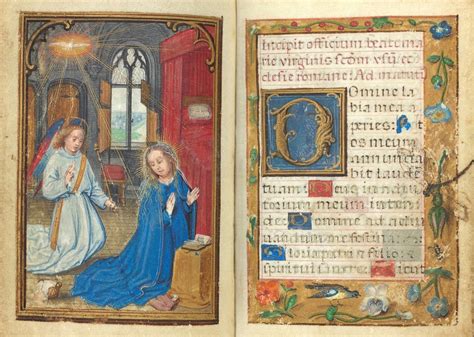 Incipit officium beatema
rie virginis scdm usu ec
clesie romane Ad matuti
Domine la
bia mea a
peries: Et
os meum
annuncia
bit laude
tuam: Deus in adiu
torium meum inten
de Domine ad adiu
uandum me festina
Gloria patri et filio et
spiritui sancto Sicut